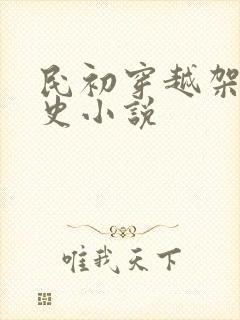 民初穿越架
史小說
唯我天下